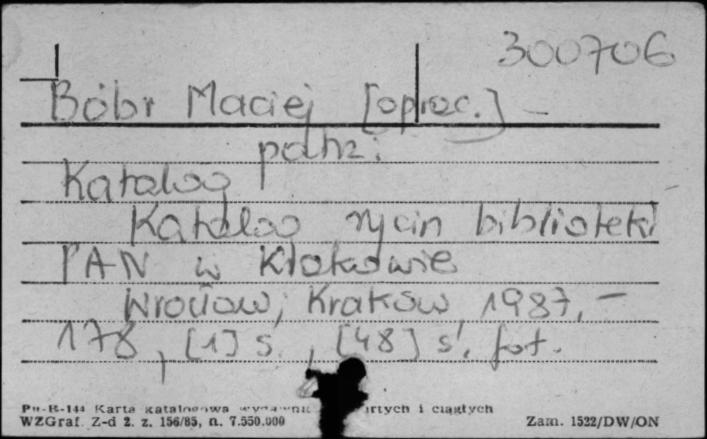 300706
Bóbr Maciej [oprac.] –
patrz:
Katalog
Katalog rycin biblioteki
PAN w Krakowie
Wrocław, Kraków 1987. –
178, [1] s., [48] s. fot.
Pu-B-144 Karta katalogowa wydawnic artych i ciągłych
WZGraf. Z-d 2. z. 156/85, n. 7.550.000 Zam. 1522/DW/ON